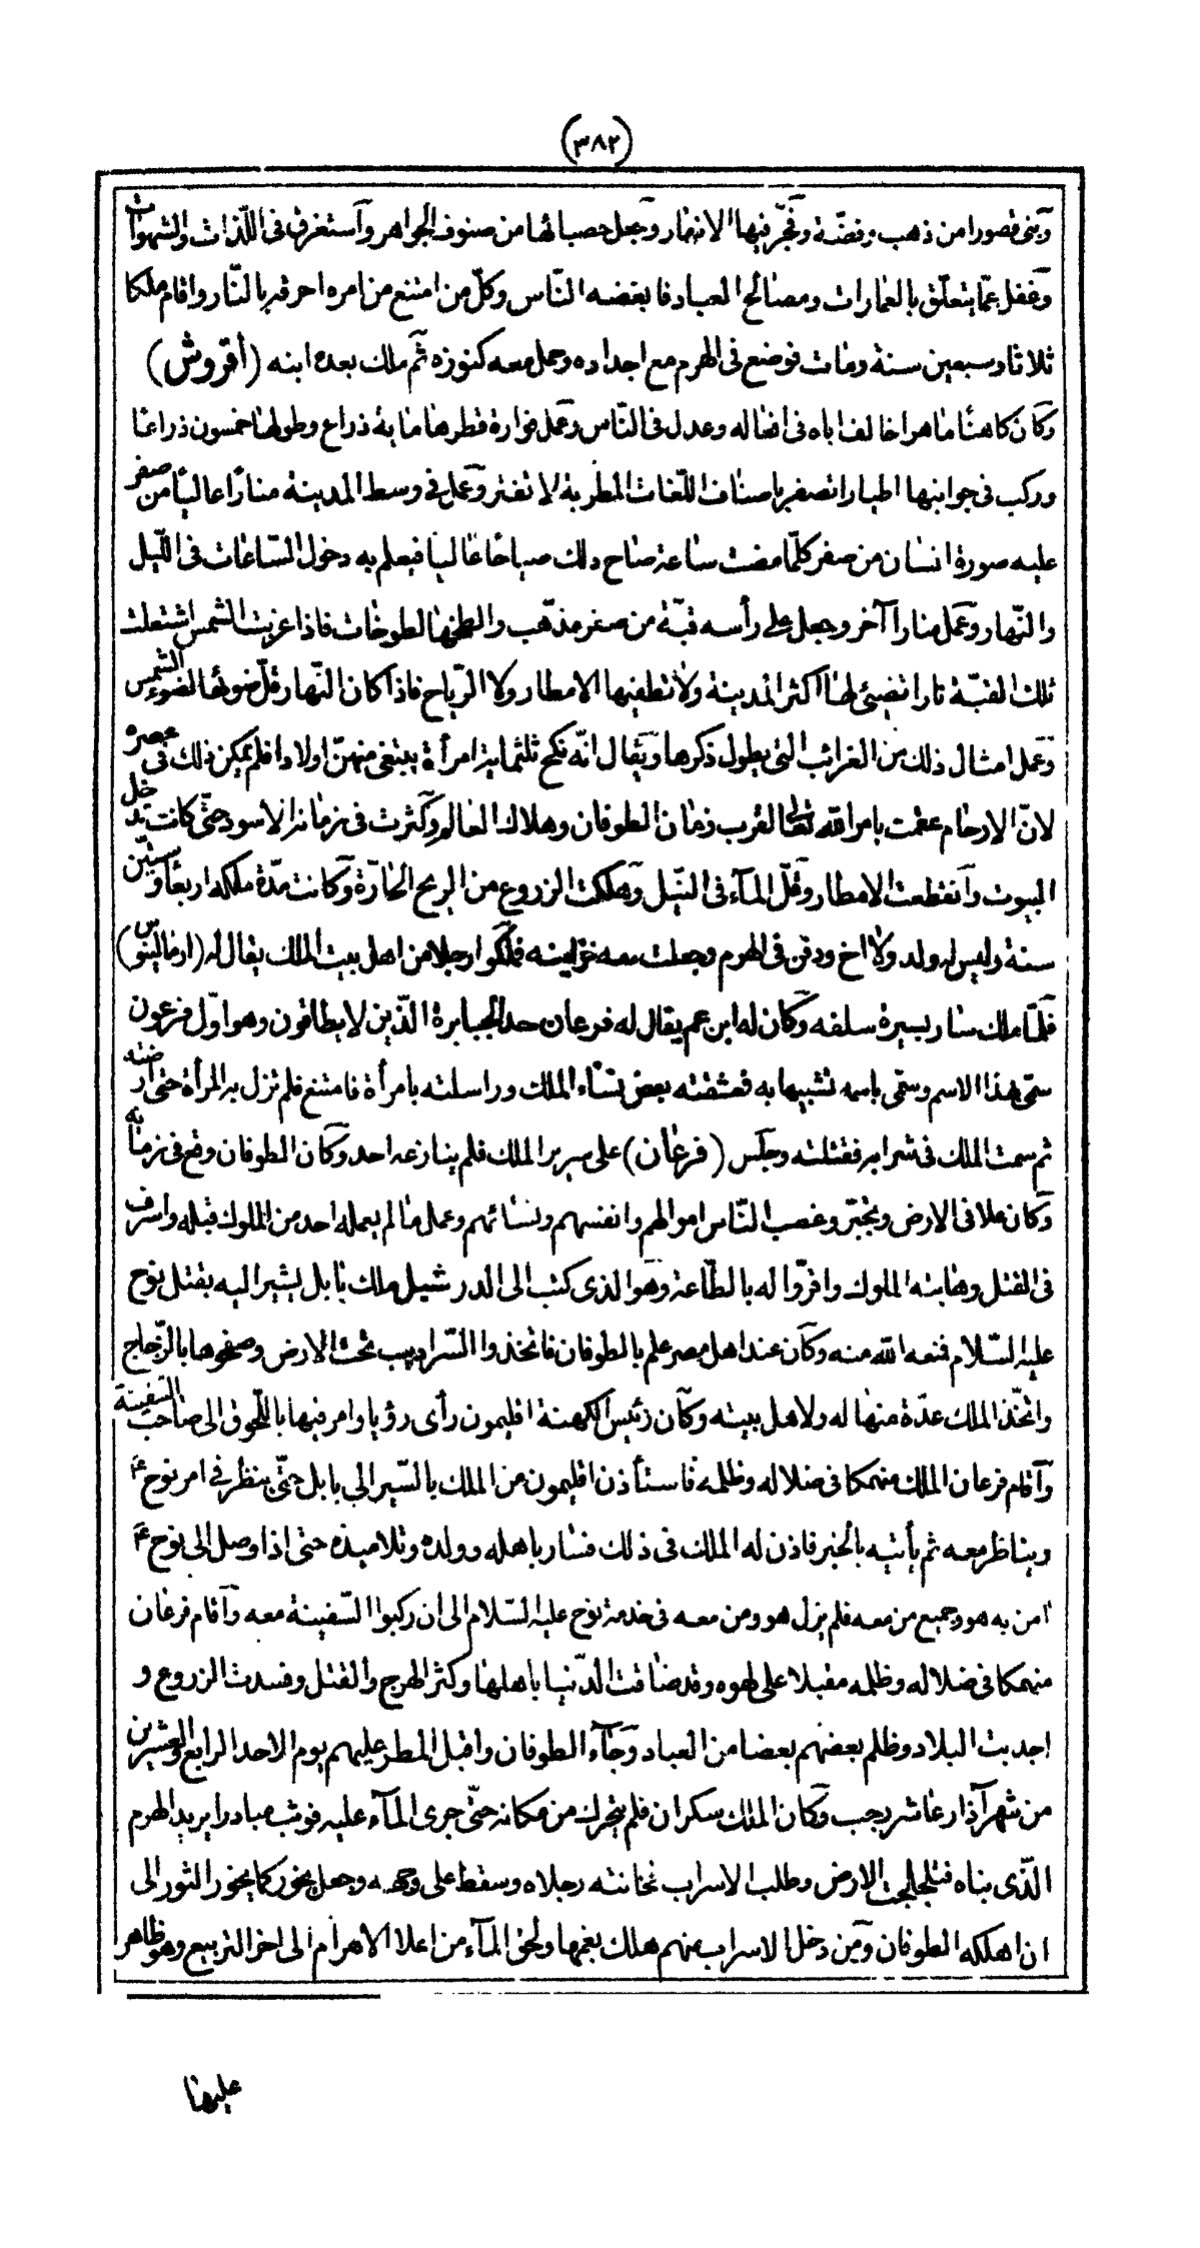 (٣٨٢)
وبنى قصورا من ذهب وفضّة وفجّر فيها الانهار وجعل حصبائها من صنوف الجواهر واستغرق فى اللّذات والشهوات
وغفل عمّا يتعلّق بالعمارات ومصالح العباد فابغضه النّاس وكلّ من امتنع من امره احرقه بالنّار واقام ملكا
ثلاثا وسبعين سنة ومات فوضع فى الهرم مع اجداده وحمل معه كنوزه ثم ملك بعده ابنه (أقروش)
وكان كاهنًا ماهرا خالف اباه فى افعاله وعدل فى النّاس وعمل فوارة قطرها مايه ذراع وطولها خمسون ذراعا
وركب فى جوانبها اطيارا تصفر باصناف اللّغات المطربة لا تفتر وعمل فى وسط المدينة منارًا عاليًا من صفر
عليه صورة انسان من صفر كلّما مضت ساعة صاح ذلك صياحًا عاليا فيعلم به دخول السّاعات فى اللّيل
والنّهار وعمل منارا آخر وجعل على رأسه قبّة من صفر مذهّب والطخها لطوخات فاذا غربت الشمس اشتعلت
تلك القبّة نارا تضيئ لها اكثر المدينة ولا تطفيها الامطار ولا الرّياح فاذا كان النّهار قلّ ضوئها لضوء الشمس
وعمل امثال ذلك من الغرائب التى يطول ذكرها ويقال انّه نكح ثلثماية امرأة يبتغى منهنّ اولادا فلم يمكن ذلك فى عصره
لانّ الارحام عقمت بامر الله تعالى لقرب زمان الطوفان وهلاك العالم وكثرت فى زمانه الاسود حتّى كانت تدخل
البيوت وانقطعت الامطار وقلّ المآء فى النّيل وهلكت الزروع من الريح الحارّة وكانت مدّة ملكه اربعًا وستّين
سنة وليس له ولد ولا اخ ودفن فى الهرم وجعلت معه خزاينه فملّكوا رجلا من اهل بيت الملك يقال له (ارمالينوس)
فلمّا ملك سار بسيرة سلفه وكان له ابن عم يقال له فرعان حد الجبابرة الّذين لا يطاقون وهو اوّل فرعون
سمّى بهذا الاسم وسمّى باسمه تشبيها به فعشقته بعض نسآء الملك وراسلته بامرأة فامتنع فلم تزل به المرأة حتى ارضته
ثم سمت الملك فى شرابه فقتلته وجلس (فرعان) على سرير الملك فلم ينازعه احد وكان الطوفان وقع فى زمانه
وكان علا فى الارض وتجبّر وغصب النّاس اموالهم وانفسهم ونسائهم وعمل ما لم يعمله احد من الملوك قبله واسرف
فى القتل وهابته الملوك واقرّوا له بالطّاعة وهو الذى كتب الى الدرشيل ملك بابل يشير اليه بقتل نوح
عليه السّلام فمنعه الله منه وكان عند اهل مصر علم بالطوفان فاتخذوا السّراديب تحت الارض وصفحوها بالزّجاج
واتخّذ الملك عدّة منها له ولاهل بيته وكان رئيس الكهنة اقليمون رأى رؤيا وامر فيها باللّحوق الى صاحب السّفينة
وآقام فرعان الملك منهمكا فى ضلاله وظلمه فاستأذن اقليمون من الملك بالسّير الى بابل حتّى ينظر فى امر نوح ع
ويناظر معه ثم يأتيه بالخبر فاذن له الملك فى ذلك فسار باهله وولده وتلاميذه حتى اذا وصل الى نوح ع
امن به هو وجميع من معه فلم يزل هو ومن معه فى خدمة نوح عليه السّلام الى ان ركبوا السّفينة معه وآقام فرعان
منهمكا فى ضلاله وظلمه مقبلا على لهوه وقد ضاقت الدّنيا باهلها وكثر الهرج والقتل وفسدت الزروع و
اجدبت البلاد وظلم بعضهم بعضا من العباد وجآء الطوفان واقبل المطر عليهم يوم الاحد الرابع والعشرين
من شهر آذار عاشر رجب وكان الملك سكران فلم يتحرك من مكانه حتّى جرى المآء عليه فوثب مبادرا يريد الهرم
الّذى بناه فتلجلجت الارض وطلب الاسراب فخانته رجلاه وسقط على وجهه وجعل يخور كما يخور الثور الى
ان اهلكه الطوفان ومن دخل الاسراب منهم هلك بغمها ولحق المآء من اعلا الاهرام الى اخر التربيع وهو ظاهر
عليها